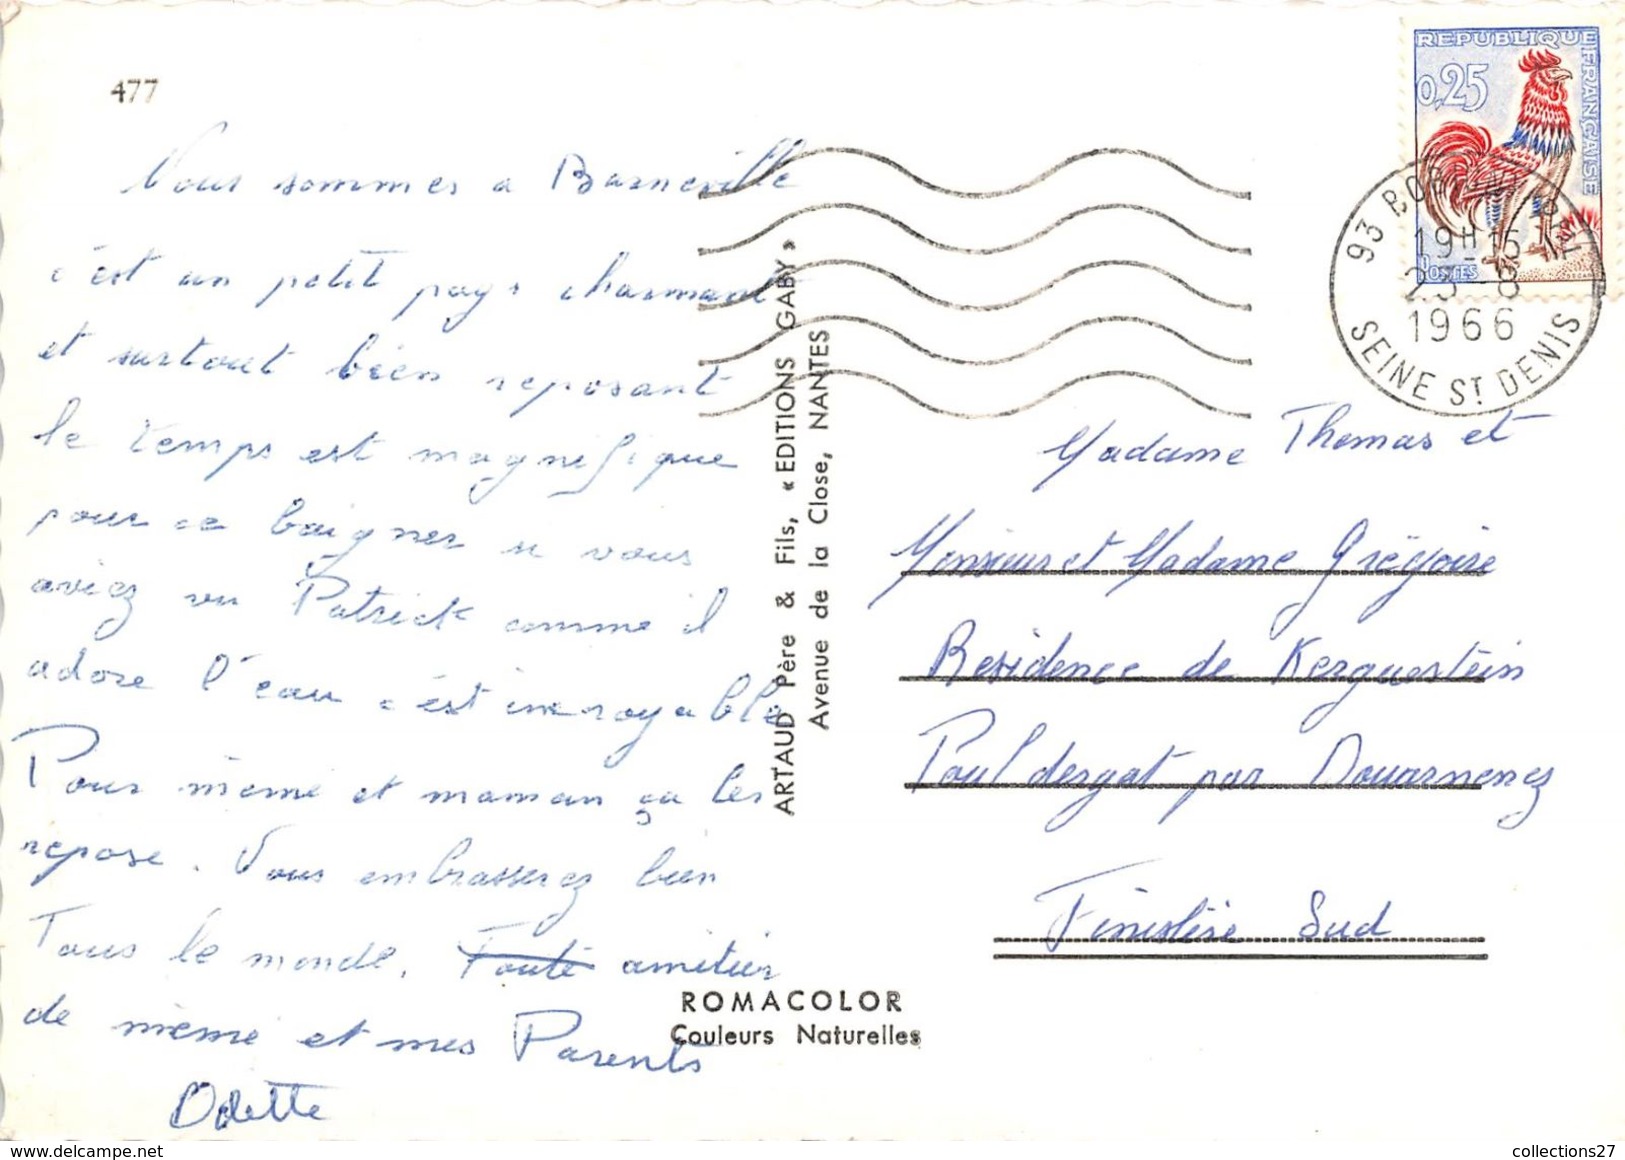 477
Nous sommes a Barneville
c'est un petit pays charmant
et surtout bien reposant
le temps est magnifique
pour ce baigner si vous
aviez vu Patrick comme il
adore l'eau c'est incroyable
Pour mémé et maman ça les
repose. Vous embrasserez bien
Tous le monde. Toute amitier
de mémé et mes Parents
Odette
ARTAUD Père & Fils, « EDITIONS GABY »
Avenue de la Close, NANTES
ROMACOLOR
Couleurs Naturelles
REPUBLIQUE FRANÇAISE
0,25
POSTES
93 BOBIGNY
19H15
1966
SEINE ST DENIS
Madame Thomas et
Monsieur et Madame Grégoire
Residence de Kerguestein
Pouldergat par Douarnenez
Finistère Sud
collections27